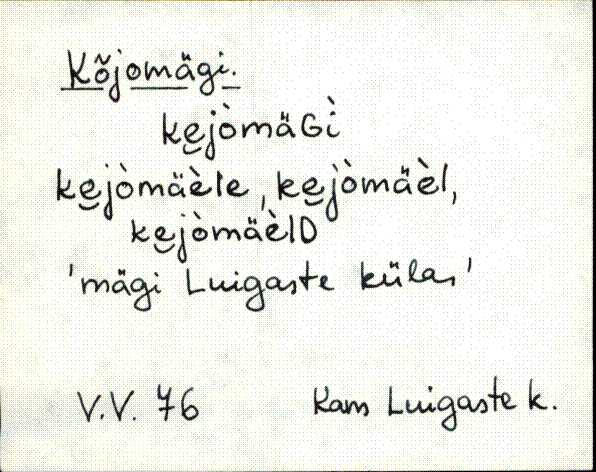 Kõjomägi.
ke̮jòmäGì
ke̮jòmäèle, ke̮jòmäèl,
ke̮jòmäèlD
'mägi Luigaste külas'
V.V. 76 Kam Luigaste k.